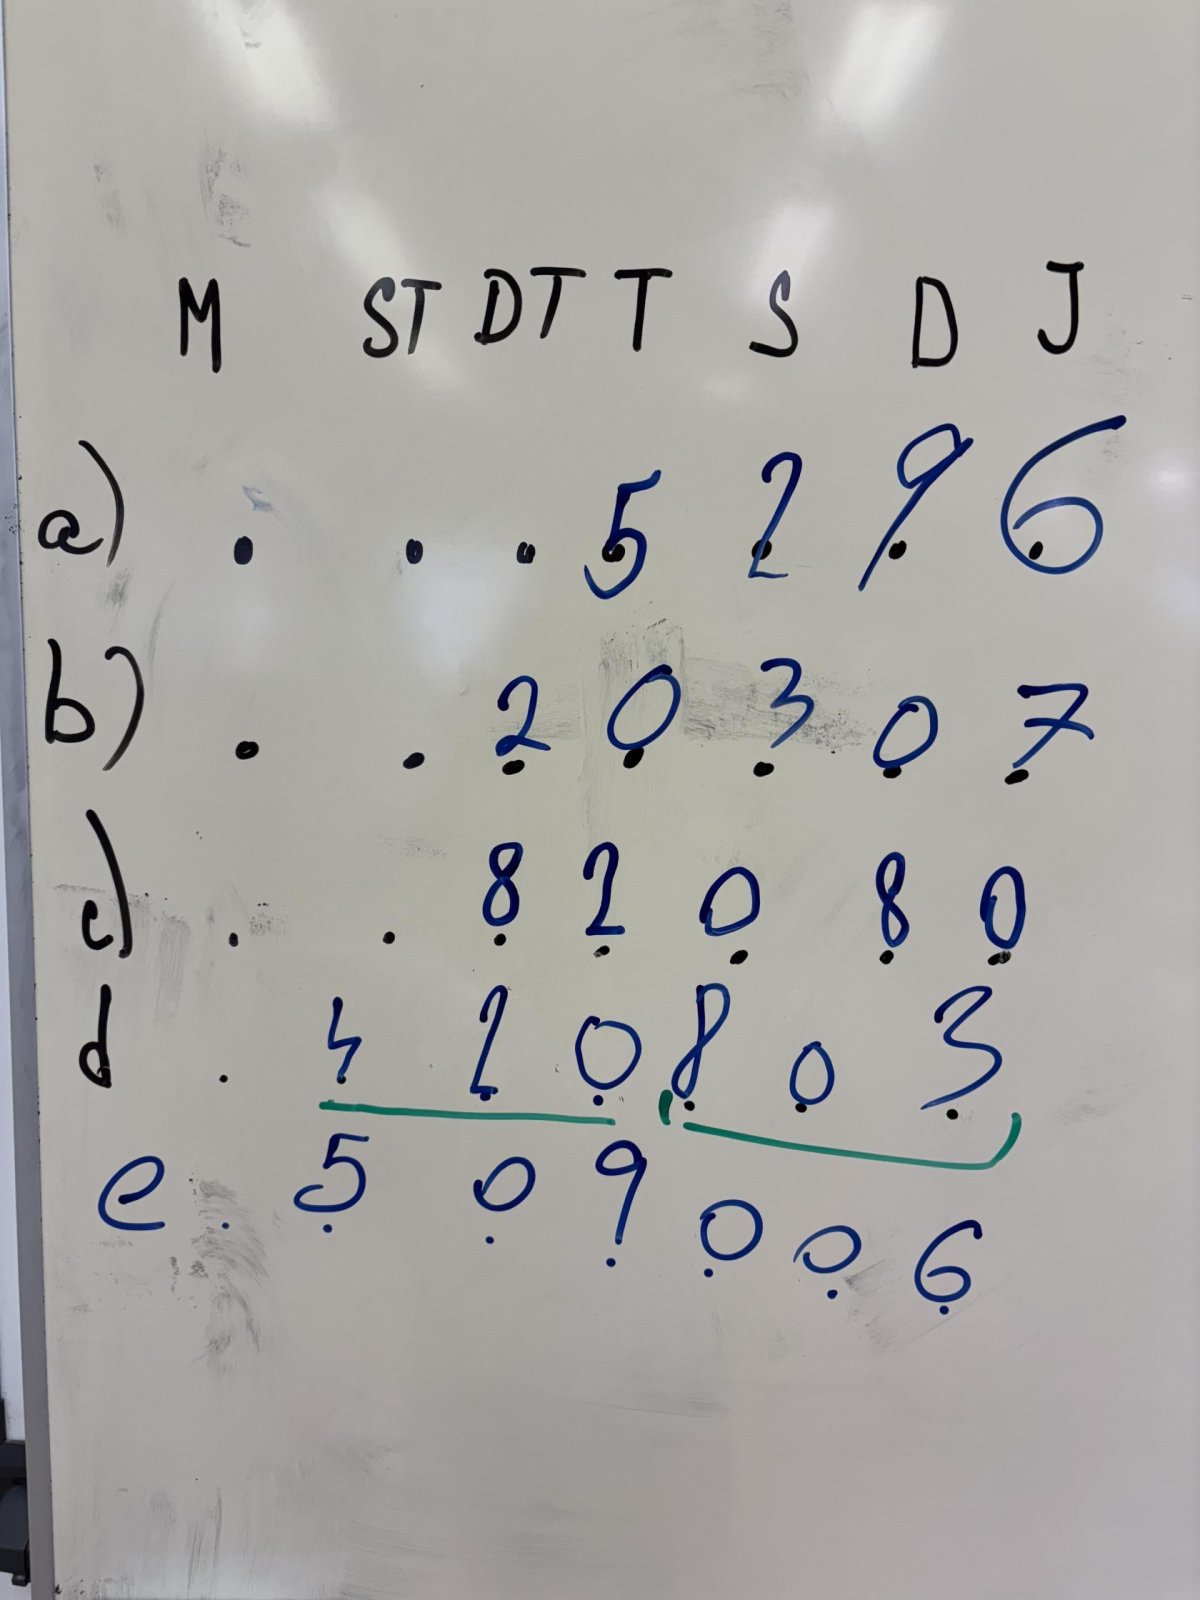 M ST DT T S D J
a) . . . 5 2 9 6
b) . . 2 0 3 0 7
c) . . 8 2 0 8 0
d . 4 2 0 8 0 3
e . 5 0 9 0 0 6